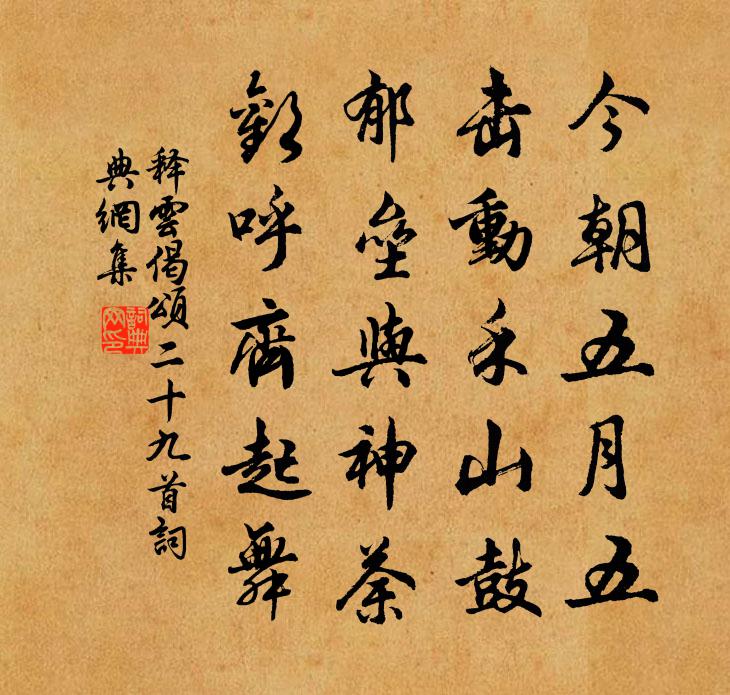 今朝五月五
击動禾山鼓
郁壘與神荼
歡呼齊起舞
释雲偈頌二十九首詞
典網集
詞典
网印